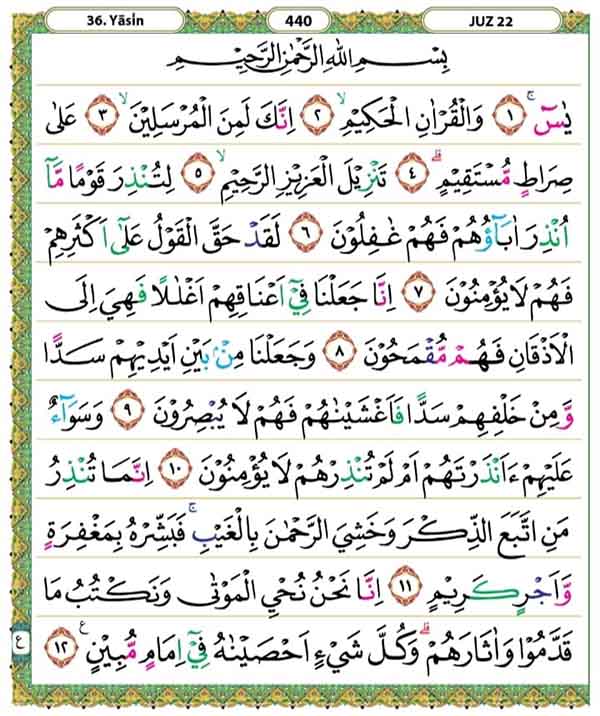 36. Yāsīn 440 JUZ 22
بِسْمِ اللهِ الرَّحْمٰنِ الرَّحِيْمِ
يٰسۤ ۚ ١ وَالْقُرْاٰنِ الْحَكِيْمِۙ ٢ اِنَّكَ لَمِنَ الْمُرْسَلِيْنَۙ ٣ عَلٰى
صِرَاطٍ مُّسْتَقِيْمٍۗ ٤ تَنْزِيْلَ الْعَزِيْزِ الرَّحِيْمِۙ ٥ لِتُنْذِرَ قَوْمًا مَّآ
اُنْذِرَ اٰبَاۤؤُهُمْ فَهُمْ غٰفِلُوْنَ ٦ لَقَدْ حَقَّ الْقَوْلُ عَلٰٓى اَكْثَرِهِمْ
فَهُمْ لَا يُؤْمِنُوْنَ ٧ اِنَّا جَعَلْنَا فِيْٓ اَعْنَاقِهِمْ اَغْلٰلًا فَهِيَ اِلَى
الْاَذْقَانِ فَهُمْ مُّقْمَحُوْنَ ٨ وَجَعَلْنَا مِنْۢ بَيْنِ اَيْدِيْهِمْ سَدًّا
وَّمِنْ خَلْفِهِمْ سَدًّا فَاَغْشَيْنٰهُمْ فَهُمْ لَا يُبْصِرُوْنَ ٩ وَسَوَاۤءٌ
عَلَيْهِمْ ءَاَنْذَرْتَهُمْ اَمْ لَمْ تُنْذِرْهُمْ لَا يُؤْمِنُوْنَ ١٠ اِنَّمَا تُنْذِرُ
مَنِ اتَّبَعَ الذِّكْرَ وَخَشِيَ الرَّحْمٰنَ بِالْغَيْبِۚ فَبَشِّرْهُ بِمَغْفِرَةٍ
وَّاَجْرٍ كَرِيْمٍ ١١ اِنَّا نَحْنُ نُحْيِ الْمَوْتٰى وَنَكْتُبُ مَا
قَدَّمُوْا وَاٰثَارَهُمْۗ وَكُلَّ شَيْءٍ اَحْصَيْنٰهُ فِيْٓ اِمَامٍ مُّبِيْنٍ ࣖ ١٢
ع